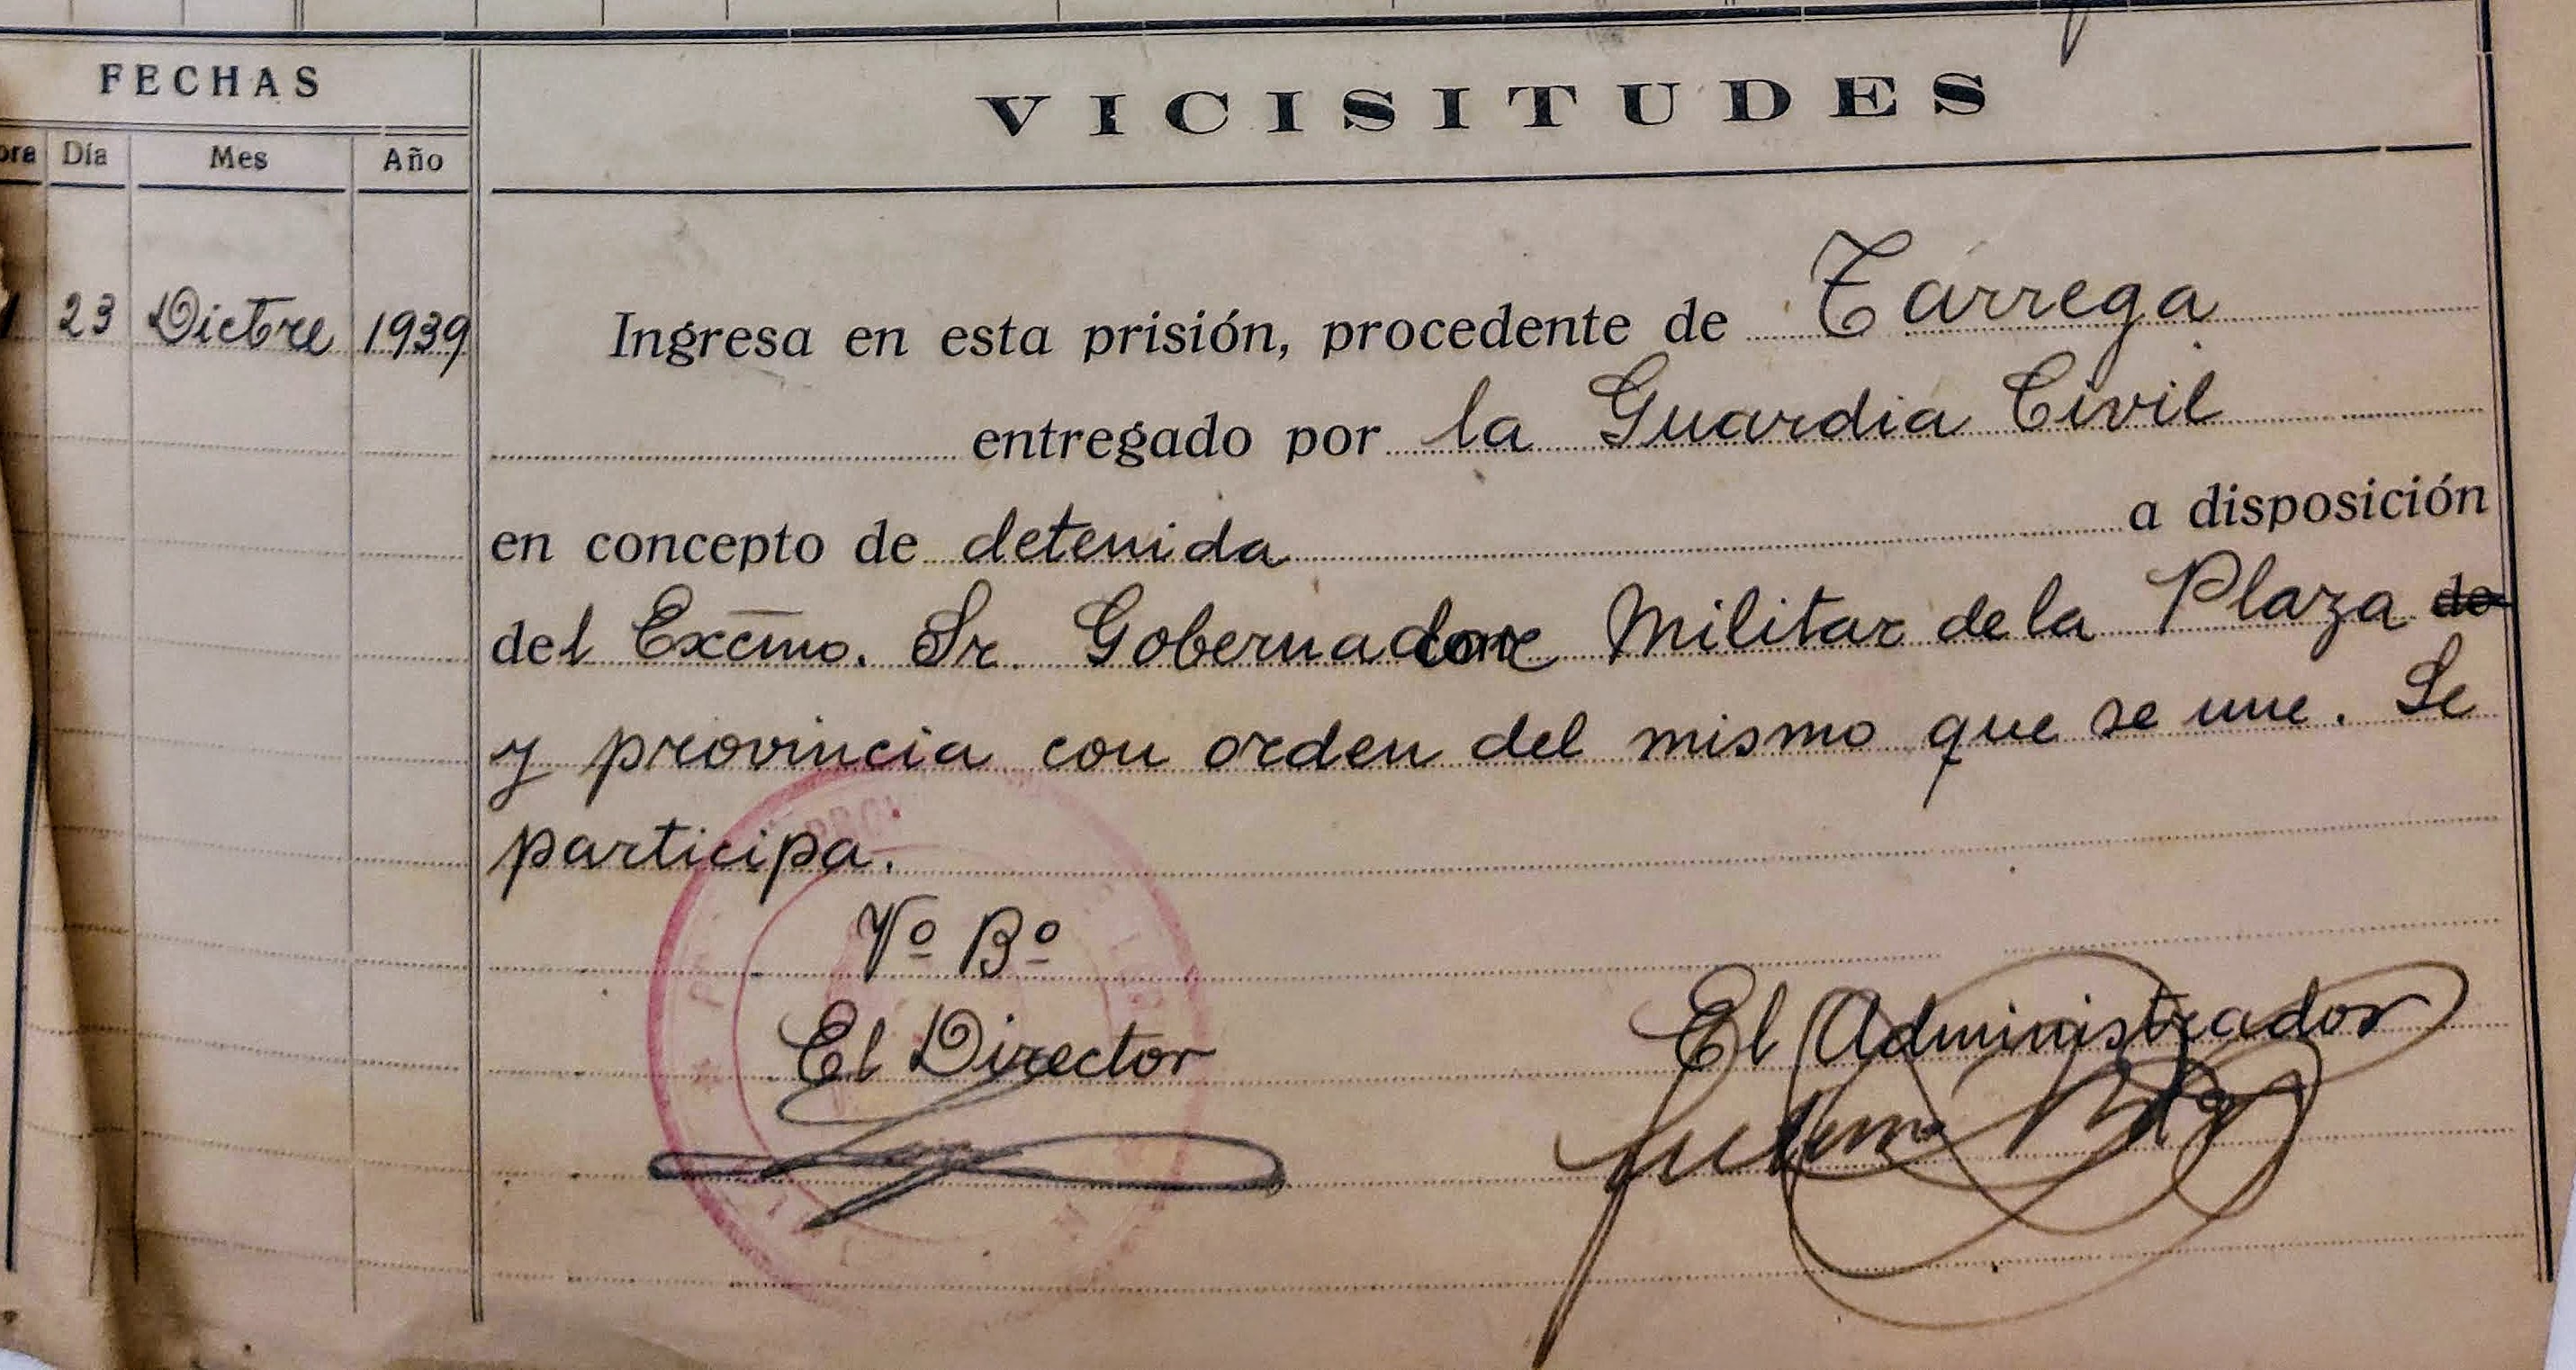 FECHAS
VICISITUDES
ora Día Mes Año
23 Dictre 1939 Ingresa en esta prisión, procedente de Tárrega
entregado por la Guardia Civil
en concepto de detenida a disposición
del Excmo. Sr. Gobernador Militar de la Plaza de
y provincia con orden del mismo que se une. Se
participa.
Vº Bº
El Director
El Administrador